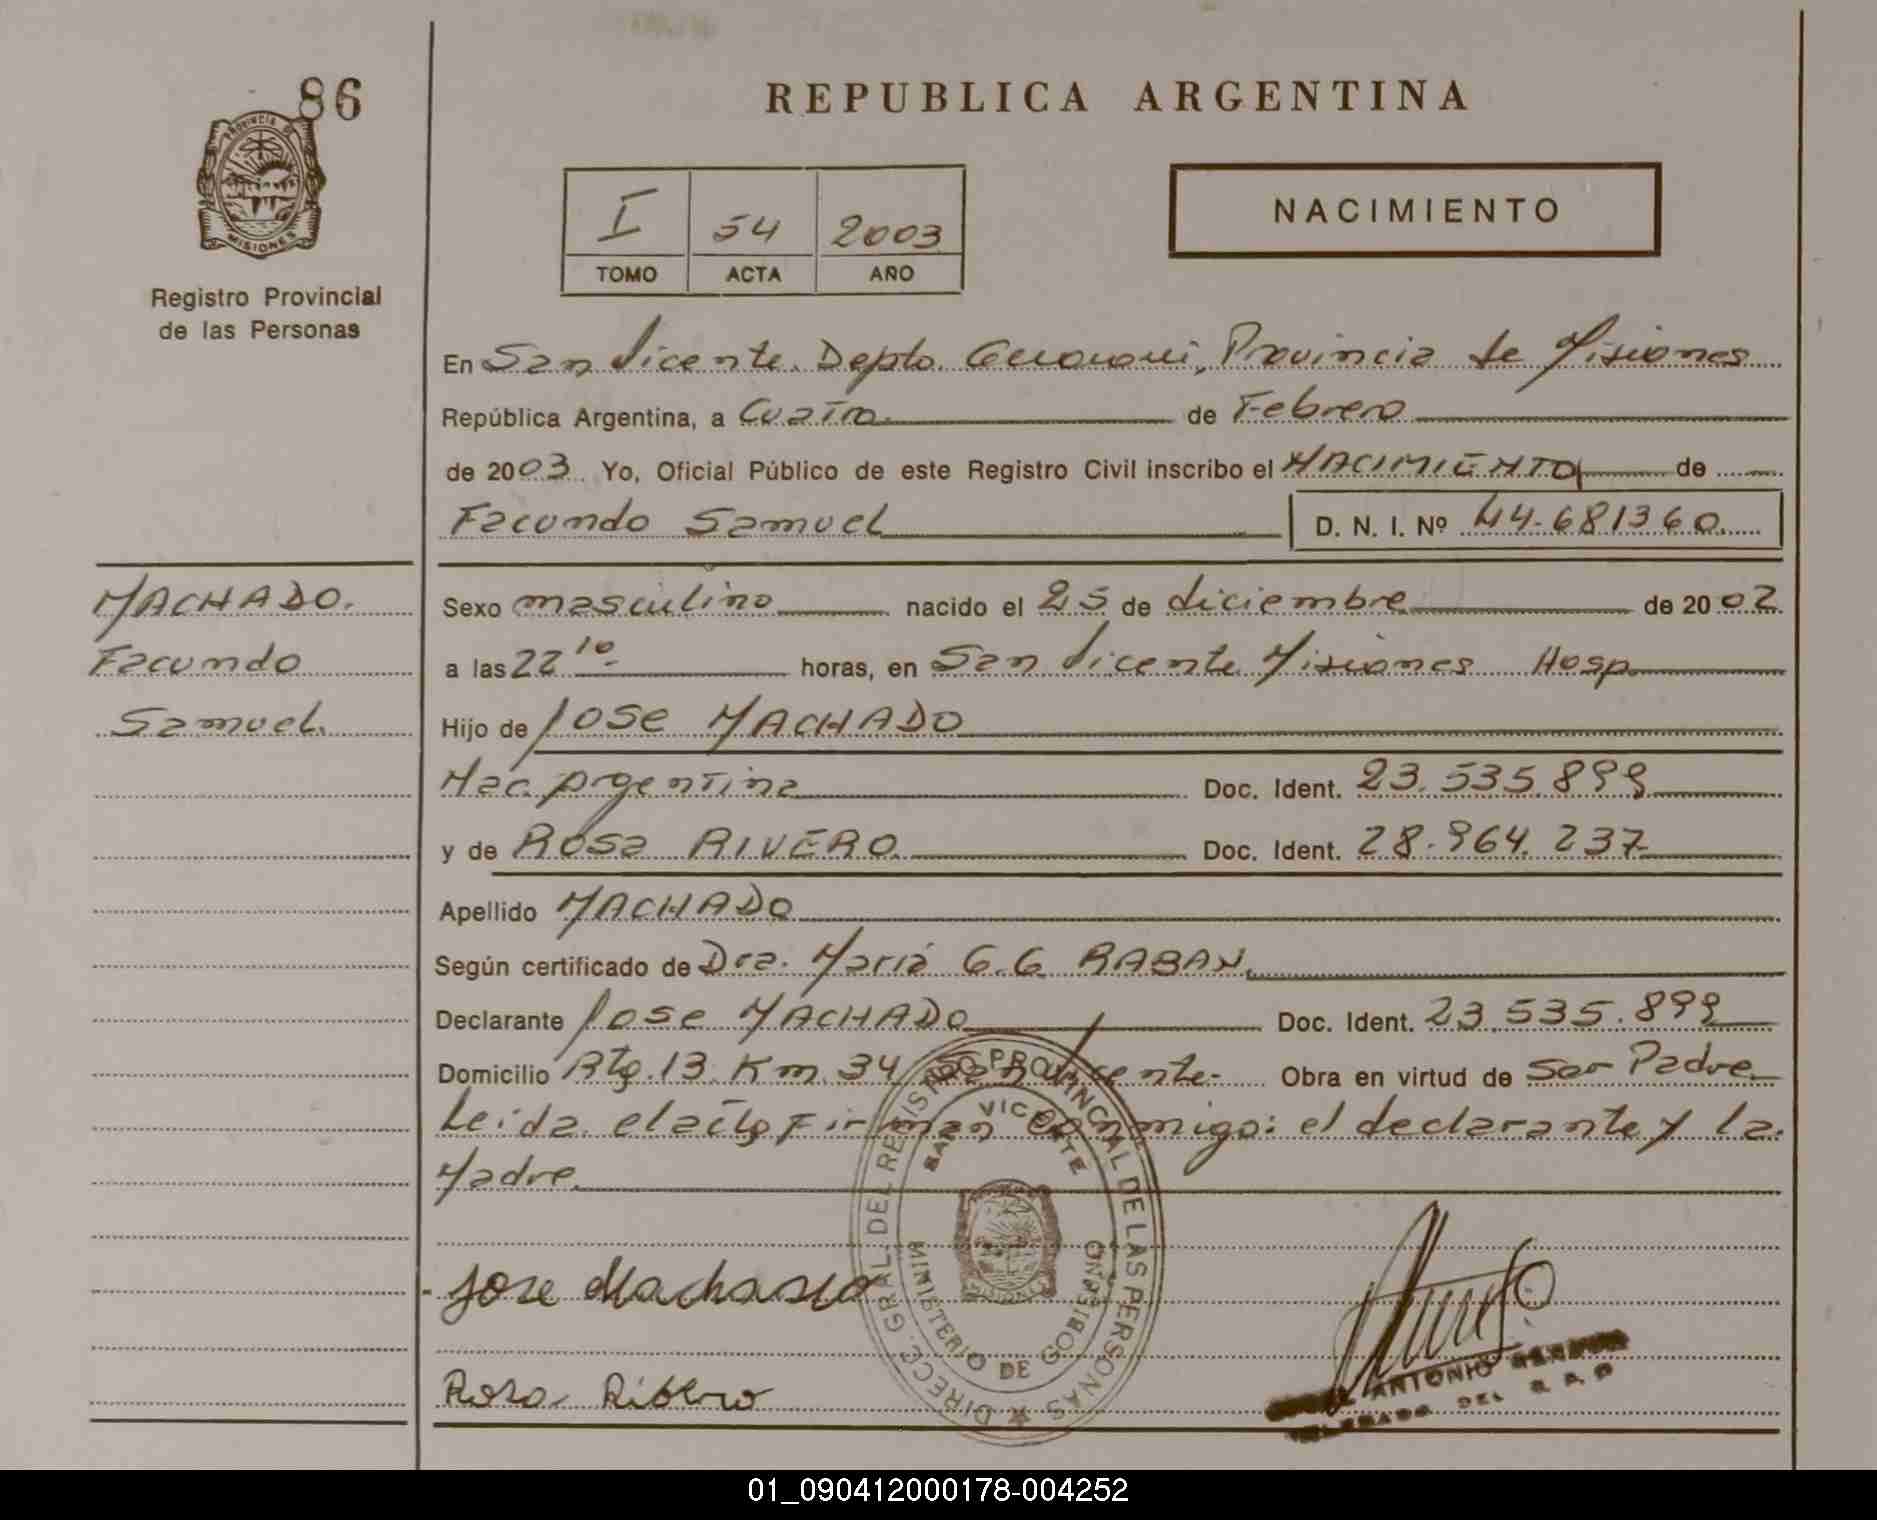 86
PROVINCIA DE
MISIONES
Registro Provincial
de las Personas
REPUBLICA ARGENTINA
I 54 2003
TOMO ACTA AÑO
NACIMIENTO
En San Vicente. Depto. Guarani, Provincia de Misiones
República Argentina, a Cuatro de Febrero
de 2003. Yo, Oficial Público de este Registro Civil inscribo el NACIMIENTO de
Facundo Samuel D. N. I. Nº 44.681360.
MACHADO.
Facundo
Samuel.
Sexo masculino nacido el 25 de diciembre de 2002
a las 22 10 horas, en San Vicente Misiones Hosp.
Hijo de Jose MACHADO
Nac. Argentina Doc. Ident. 23.535.899
y de Rosa RIVERO. Doc. Ident. 28.964.237
Apellido MACHADO
Según certificado de Dra. Maria G.G. RABAN.
Declarante Jose MACHADO Doc. Ident. 23.535.899
Domicilio Rta. 13 Km. 34 San Vicente. Obra en virtud de Ser Padre
Leida el acta Firman conmigo: el declarante y la
Madre.
DIRECC. GRAL. DEL REGISTRO PROVINCIAL DE LAS PERSONAS
SAN VICENTE
MINISTERIO DE GOBIERNO
Jose Machado
Rosa Ribero
ANTONIO
DEL R. P. P.
01_090412000178-004252